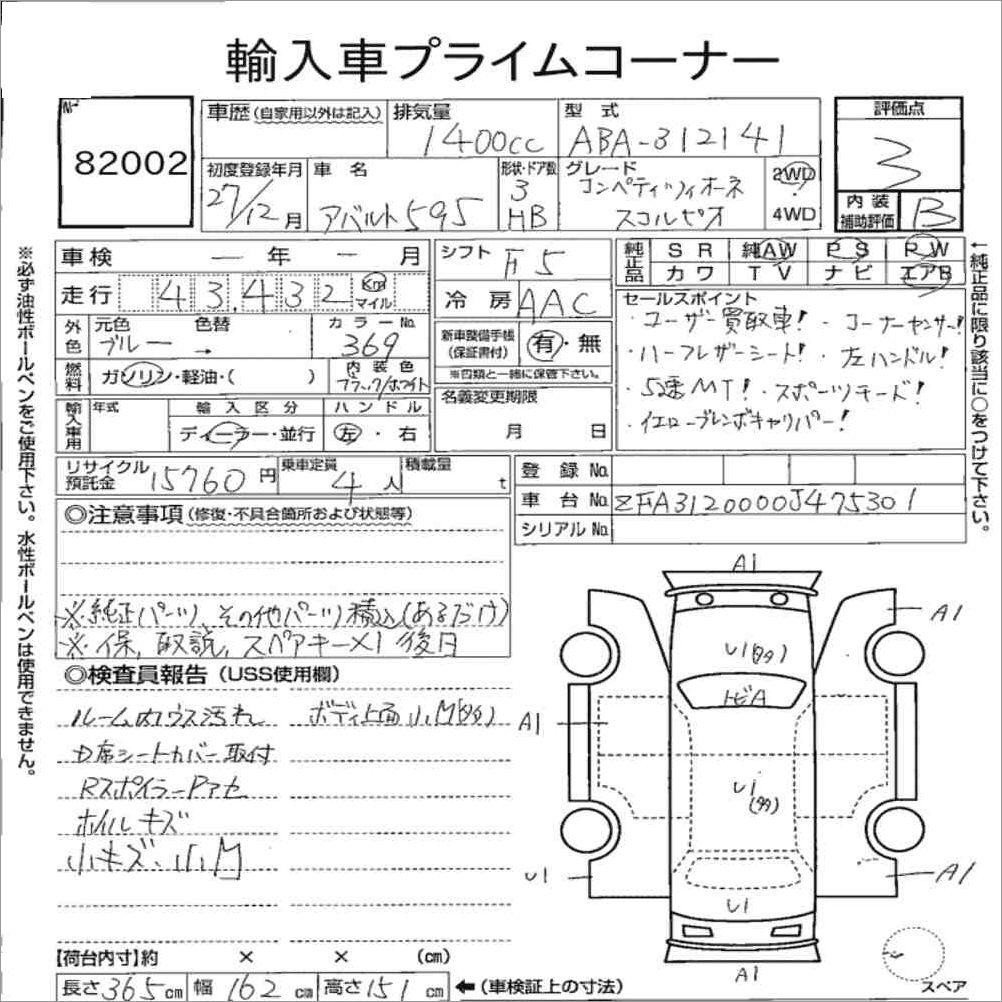 輸入車プライムコーナー
№
82002
車歴(自家用以外は記入)
排気量
1400cc
型式
ABA-312141
評価点
3
初度登録年月
27/12月
車名
アバルト595
形状・ドア数
3
HB
グレード
コンペティツィオーネ
スコルピオ
2WD
4WD
内装
補助評価
B
車検 — 年 — 月
シフト
F5
純正品
SR 純AW PS PW
カワ TV ナビ エアB
走行 43,432 Km マイル
冷房 AAC
セールスポイント
・ユーザー買取車! ・コーナーセンサー!
・ハーフレザーシート! ・左ハンドル!
・5速MT! ・スポーツモード!
・イエローブレンボキャリパー!
外色
元色
ブルー
色替
→
カラーNo.
369
新車整備手帳
(保証書付)
有・無
※四類と一緒に保管下さい。
燃料
ガソリン・軽油・( )
内装色
ブラック/ホワイト
名義変更期限
月 日
輸入車用
年式
輸入区分
ディーラー・並行
ハンドル
左・右
リサイクル
預託金
15760円
乗車定員
4人
積載量
t
登録No.
車台No. ZFA3120000J475301
シリアルNo.
◎注意事項(修復・不具合箇所および状態等)
※純正パーツ、その他パーツ積込(あるだけ)
※保、取説、スペアキー×1 後日
◎検査員報告(USS使用欄)
ルーム内ウス汚れ ボディ上面小M(多)
D席シートカバー取付
RスポイラーPアセ
ホイルキズ
小キズ・小M
A1
A1
U1(多)
トビA
A1
U1
(多)
U1
A1
U1
A1
スペア
【荷台内寸】約 × × (cm)
長さ365cm 幅162cm 高さ151cm ←(車検証上の寸法)
※必ず油性ボールペンをご使用下さい。水性ボールペンは使用できません。
←純正品に限り該当に○をつけて下さい。